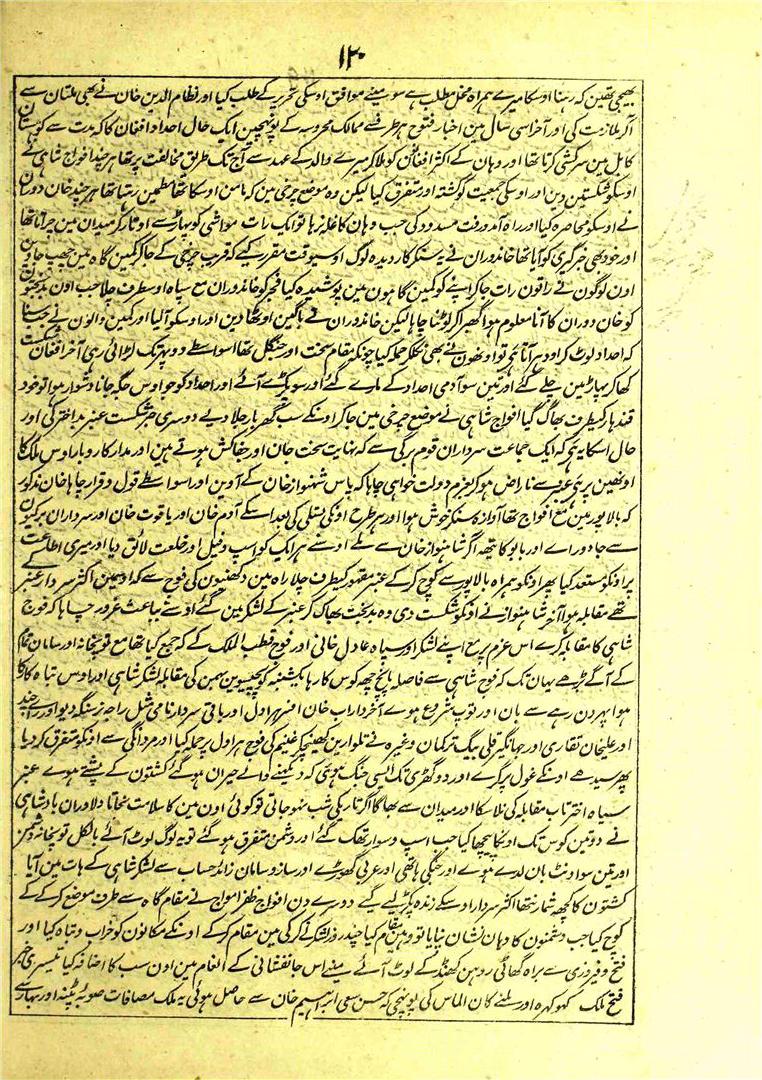 ۱۲۰
بھیجی تھین کہ رہنا اوسکا میرے ہمراہ مخل مطلب ہے سو مینے موافق اوسکی تحریر کے طلب کیا اور نظام الدین خان نے بھی ملتان سے
آکر ملازمت کی اور آخر اسی سال مین اخبار فتوح ہر طرف سے ممالک محروسہ کے پونہچین ایک حال احداد افغان کا کہ مدت سے کوہستان
کابل مین سرکشی کرتا تھا اور وہان کے اکثر افغانون کو ملا کر میرے والد کے عہد سے آج تک طریق مخالفت پر تھا ہر چند افواج شاہی نے
اوسکو شکستین دین اور اوسکی جمعیت کو کشتہ اور متفرق کیا لیکن وہ موضع چرخی مین کہ مامن اوسکا تھا مطمئن رہتا تھا ہر چند خان دوران
نے اوسکو محاصرہ کیا اور راہ آمد و رفت مسدود کی جب وہان کا غلہ نرہا تو ایک رات مواشی کو پہاڑ سے اوتار کر میدان مین چراتا تھا
اور خود بھی خبرگیری کو آتا تھا خاندوران نے یہ سنکر کار دیدہ لوگ اوسیوقت مقرر کیے کہ قریب چرخی کے جا کر کمین گاہ مین چھپ جاوین
اون لوگون نے راتون رات جا کر اپنے کو کمین گاہون مین پوشیدہ کیا فجر کو خاندوران مع سپاہ اوسطرف چلا جب اون بدبختون
کو خان دوران کا آنا معلوم ہوا گھبرا کر لوٹنا چاہا لیکن خاندوران نے باگین اوٹھا دین اور اوسکو آلیا اور کمین والون نے جب سنا
کہ احداد لوٹ کر اودہر آتا ہے تو اونھون نے بھی نکلکر حملہ کیا چونکہ مقام سخت اور جنگل تھا اسواسطے دوپہر تک لڑائی رہی آخر افغان شکست
کھا کر پہاڑ مین چلے گئے اور تین سو آدمی احداد کے مارے گئے اور سو پکڑے آئے اور احداد کو جو اوس جگہ جانا دشوار ہوا تو خود
قندہار کیطرف بھاگ گیا افواج شاہی نے موضع چرخی مین جا کر اونکے سب گھر بار جلا دیے دوسری خبر شکست عنبر بداختر کی اور
حال اسکا یہ ہے کہ ایک جماعت سرداران قوم برگی سے کہ نہایت سخت جان اور جفاکش ہوتے ہین اور مدار کار و بار اوس ملک کا
اونھین پر ہے عنبر سے ناراض ہو کر بعزم دولت خواہی چاہا کہ پاس شہنواز خان کے آوین اور اسواسطے قول و قرار چاہا خان مذکور
کہ بالاپور مین مع افواج تھا آوازہ سنکر خوش ہوا اور ہر طرح اونکی تسلی کی بعد اسکے آدم خان اور یاقوت خان اور سرداران برگیون
سے جادو راے اور بابو کاتھہ اگر شاہنواز خان سے ملے اوسنے ہر ایک کو اسپ و فیل اور خلعت لائق دیا اور میری اطاعت
پر اونکو مستعد کیا پھر اونکو ہمراہ بالاپور سے کوچ کر کے عنبر مقہور کیطرف چلا راہ مین دکھنیون کی فوج سے کہ اوسمین اکثر سردار عنبر
تھے مقابلہ ہوا آخر شاہنواز نے اونکو شکست دی وہ بدبخت بھاگ کر عنبر کے لشکر مین گئے اوسنے بباعث غرور چاہا کہ فوج
شاہی کا مقابلہ کرے اس عزم پر مع اپنے لشکر اور سپاہ عادل خانی اور فوج قطب الملک کے کہ جمع کیا تھا مع توپخانہ اور سامان تمام
کے آگے بڑھے یہان تک کہ فوج شاہی سے فاصلہ پانچ چھ کوس کا رہا یکشنبہ کو پچیسوین بہمن کی مقابلہ لشکر شاہی اور اوس تباہ کار کا
ہوا پہر دن رہے سے بان اور توپ شروع ہوے آخر داراب خان افسر ہراول اور باقی سردار نامی مثل راجہ نرسنگہ دیو اور راے چند
اور علیخان تتاری اور جہانگیر قلی بیگ ترکمان وغیرہ نے تلوارین کھینچکر غنیم کی فوج ہراول پر حملہ کیا اور مردانگی سے اونکو متفرق کر دیا
پھر سیدھے اونکے غول پر گرے اور دو گھڑی تک ایسی جنگ ہوئی کہ دیکھنے والے حیران ہو گئے کشتون کے پشتے ہوے عنبر
سیاہ اختر تاب مقابلہ کی نلا سکا اور میدان سے بھاگا اگر تاریکی شب نہوجاتی تو کوئی اون مین کا سلامت نجاتا دلاوران بادشاہی
نے دو تین کوس تک اونکا پیچھا کیا جب اسپ و سوار تھک گئے اور دشمن متفرق ہو گئے تو یہ لوگ لوٹ آئے بالکل توپخانہ دشمن
اور تین سو اونٹ بان لدے ہوے اور جنگی ہاتھی اور عربی گھوڑے اور ساز و سامان زائد حساب سے لشکر شاہی کے ہات مین آیا
کشتون کا کچھ شمار نتھا اکثر سردار اوسکے زندہ پکڑ لیے گئے دوسرے دن افواج ظفر امواج نے مقام گاہ سے طرف موضع کرکے کے
کوچ کیا جب دشمنون کا وہان نشان نپایا تو وہین مقام کیا چند روز لشکر نے کرکی مین مقام کر کے اونکے مکانون کو خراب و تباہ کیا اور
فتح و فیروزی سے براہ گھاٹی روہن کھنڈ کے لوٹ آئے مینے اس جانفشانی کے انعام مین اون سب کا اضافہ کیا تیسری خبر
فتح ملک کھوکھرہ اور ملنے کان الماس کی پونہچی کہ حسن سعی ابراہیم خان سے حاصل ہوئی یہ ملک مضافات صوبہ پٹنہ اور بہار سے